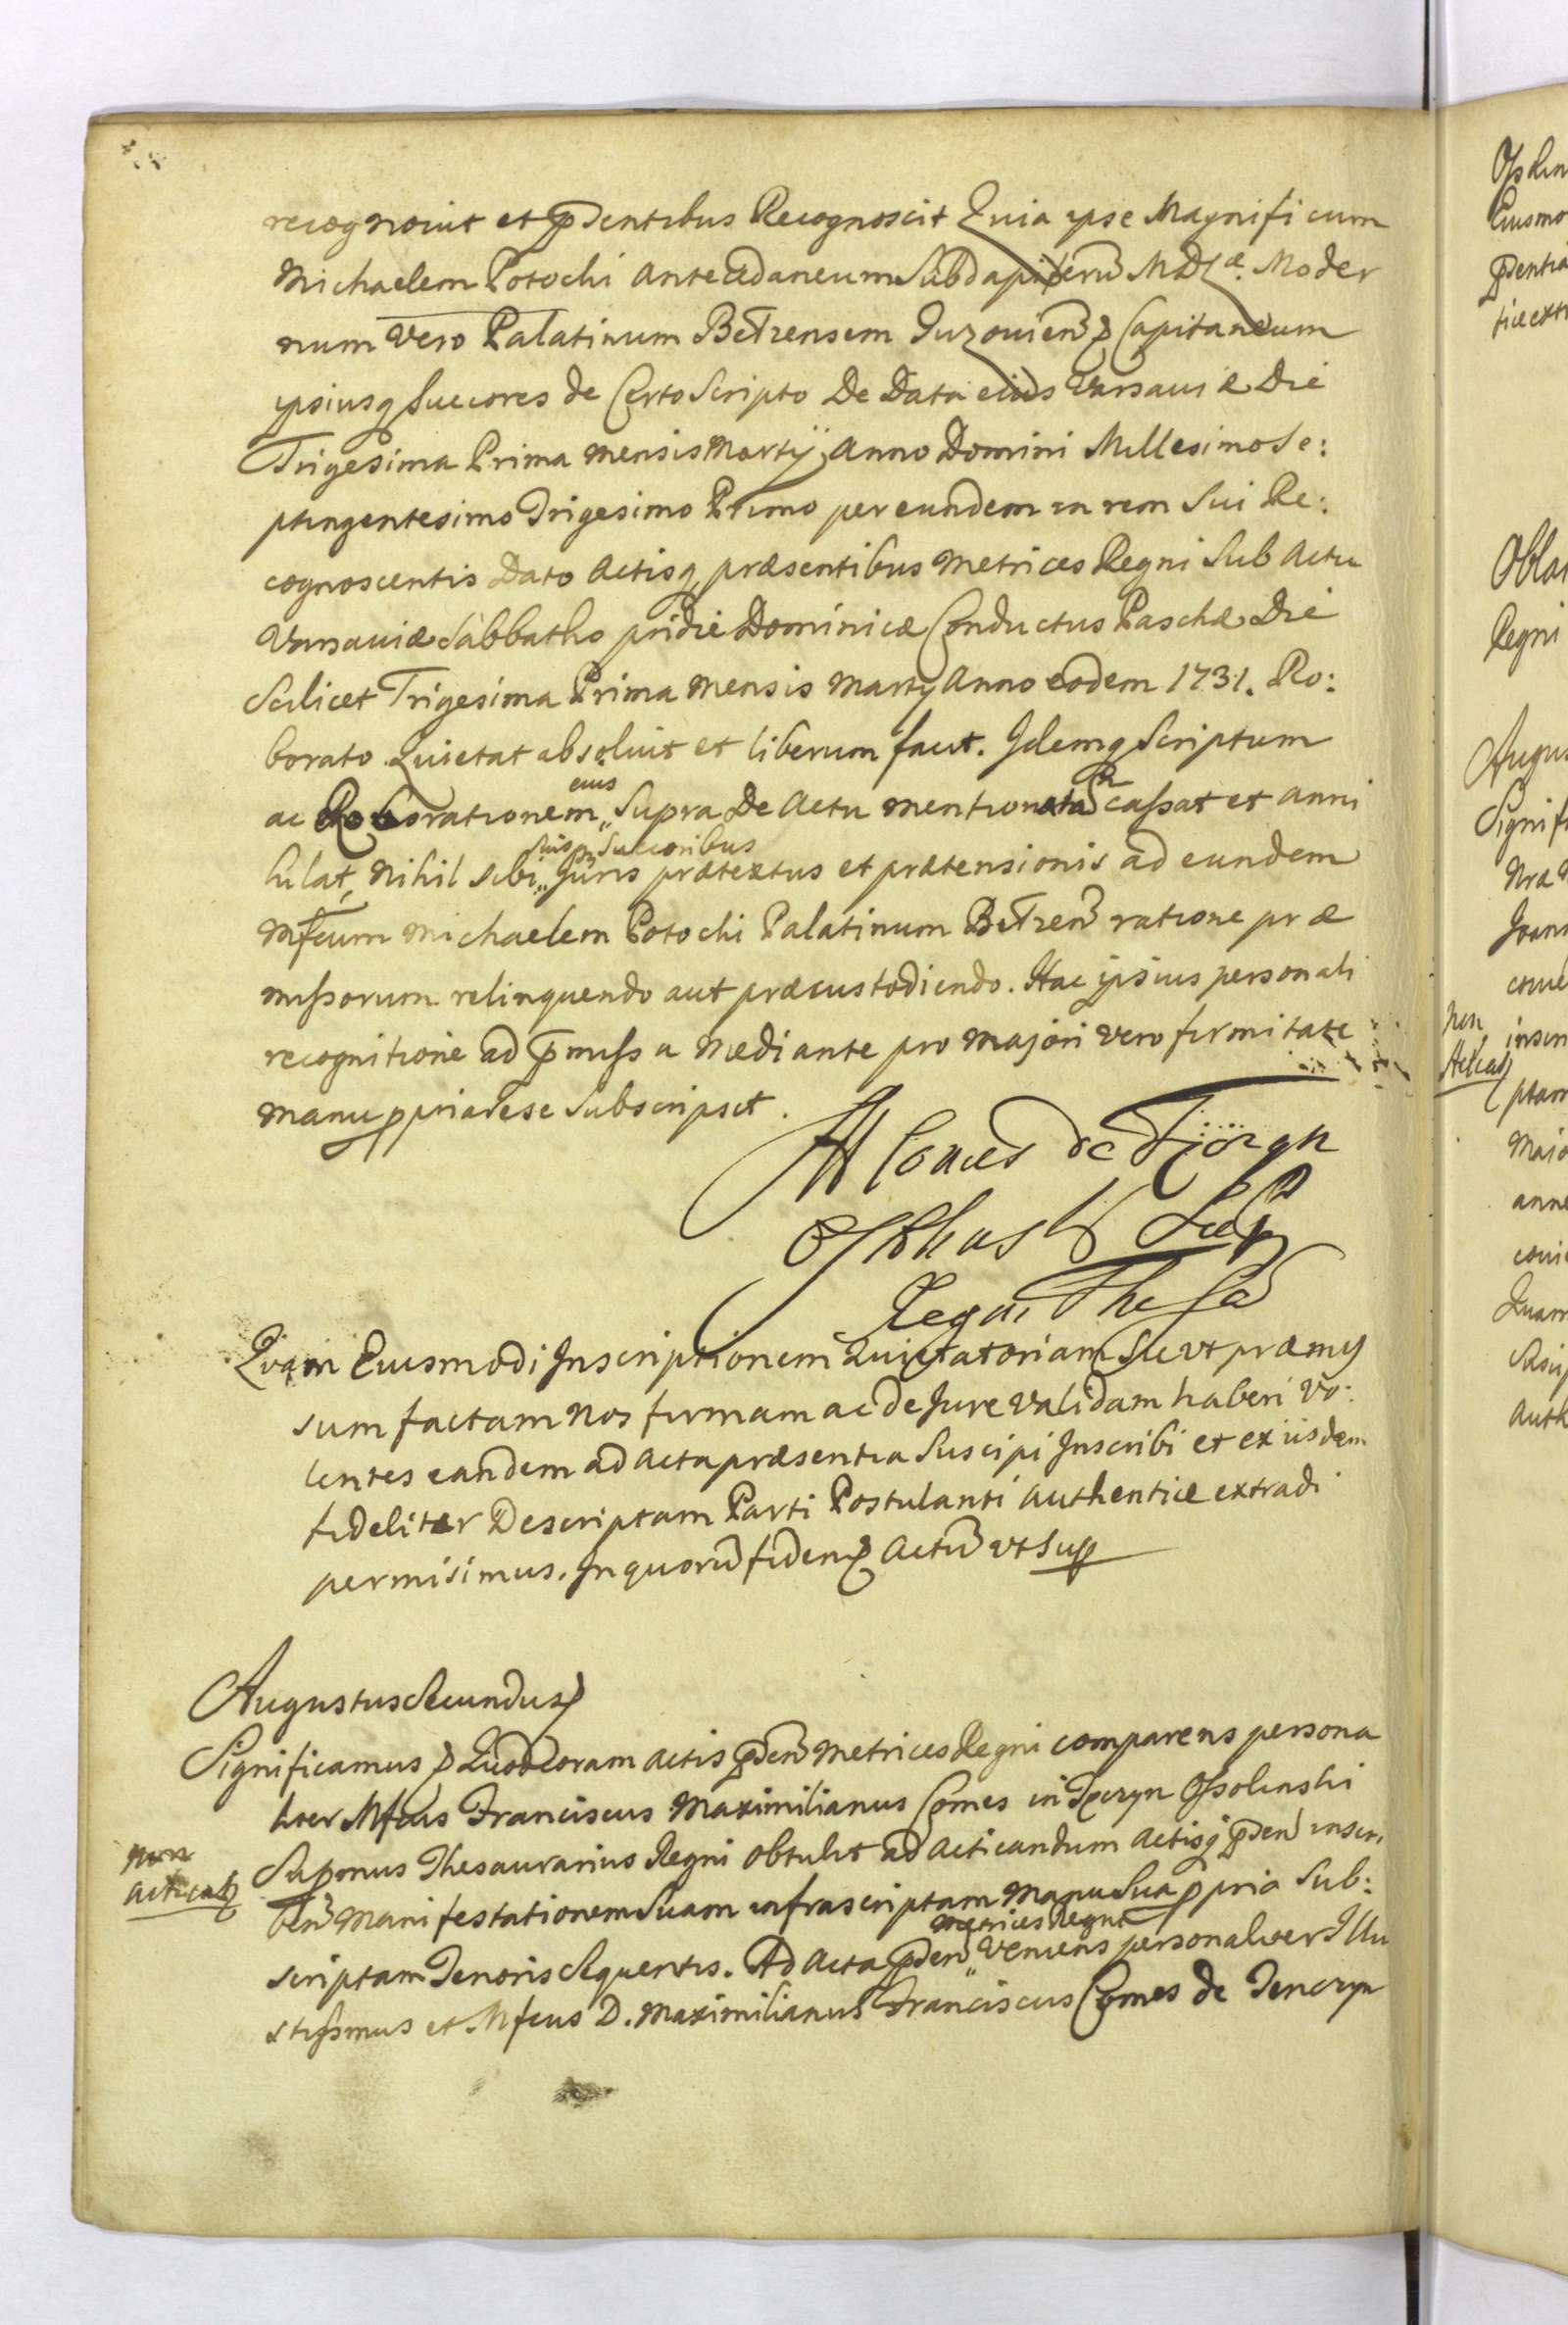 recognovit et p̄dentibus Recognoscit Quia ipse Magnificum
Michaelem Potochi Antecedaneum Subdapiferū MDLæ. Moder
num Vero Palatinum Betzensem Capitaneum
ipsiusq Succores de Certo Scripto De Data eius Varsaviæ Die
Trigesima Prima mensis Martij Anno Domini Millesimo Se:
ptingentesimo Trigesimo Primo per eundem in rem Sui Re:
cognoscentis Dato Actisq præsentibus Metrices Regni Sub Actu
Varsaviæ Sabbatho pridie Dominicæ Conductus Paschæ Die
Scilicet Trigesima Prima Mensis Martij Anno eodem 1731. Ro:
borato Quietat absolvit et liberum facit. Idemq Scriptum
ac Roborationem eius Supra De Actu mentionatā cassat et anni
hilat, Nihil sibi suisq Succoribus Juris prætextus et prætensionis ad eundem
Mfcum Michaelem Potochi Palatinum Betzen̄ ratione præ
missorum relinquendo aut præcustodiendo. Hac ipsius personali
recognitione ad p̄missa Mediante pro majori vero firmitate
manu ppria sese Subscripsit.
Comes de
Regni The
Quam Eiusmodi Inscriptionem Quietatoriam Sic ut præmis
sum factam Nos firmam ac de Jure Validam haberi Vo:
lentes eandem ad Acta præsentia Suscipi Inscribi et ex iisdem
fideliter Descriptam Parti Postulanti Authentice extradi
permisimus. In quorū fidem Actū ut Sup
Augustus Secundus
Significamus Quod coram Actis p̄den̄ Metrices Regni comparens persona
liter Mfcus Franciscus Maximilianus Comes in Tęczyn Ossolinski
Supremus Thesaurarius Regni obtulit ad Acticandum Actisq p̄den̄ inscri
Acticat
ben̄ Manifestationem Suam infrascriptam Manu Sua ppria Sub:
scriptam Tenoris Sequentis. Ad Acta p̄den̄ Metrices Regni Veniens personaliter Illu
strissimus et Mfcus D. Maximilianus Franciscus Comes de Tenczyn